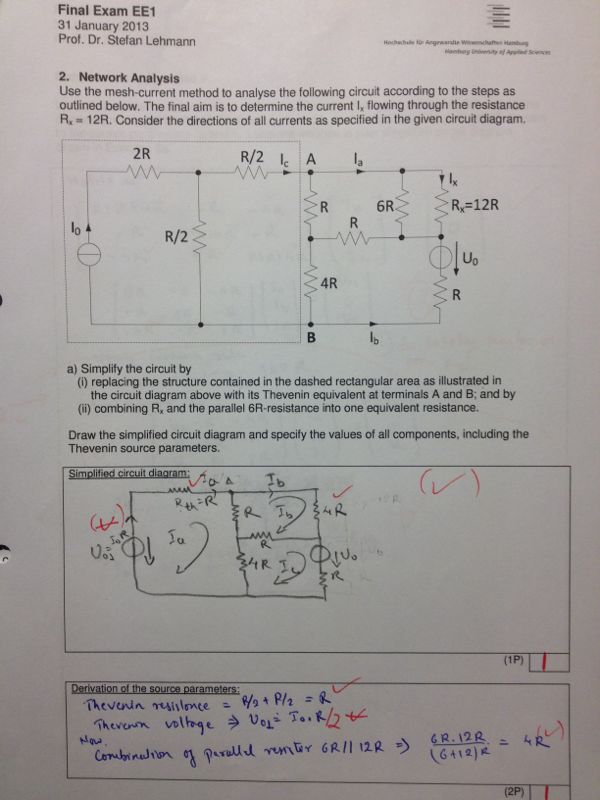 Final Exam EE1
31 January 2013
Prof. Dr. Stefan Lehmann
Hochschule für Angewandte Wissenschaften Hamburg
Hamburg University of Applied Sciences
2. Network Analysis
Use the mesh-current method to analyse the following circuit according to the steps as
outlined below. The final aim is to determine the current Iₓ flowing through the resistance
Rₓ = 12R. Consider the directions of all currents as specified in the given circuit diagram.
2R R/2 Ic A Ia
Iₓ
R 6R Rₓ=12R
I₀ R/2 R
U₀
4R R
B Ib
a) Simplify the circuit by
(i) replacing the structure contained in the dashed rectangular area as illustrated in
the circuit diagram above with its Thevenin equivalent at terminals A and B; and by
(ii) combining Rₓ and the parallel 6R-resistance into one equivalent resistance.
Draw the simplified circuit diagram and specify the values of all components, including the
Thevenin source parameters.
Simplified circuit diagram:
Ia A Ib
Rth=R
R Ib 4R
Ia R
U01=I0R
4R Ic U0
R
(1P) 1
Derivation of the source parameters:
Thevenin resistance = R/2 + R/2 = R
Thevenin voltage ⇒ U01 = I0.R/2
Now,
Combination of parallel resistor 6R || 12R ⇒ 6R.12R / (6+12)R = 4R
(2P) 1